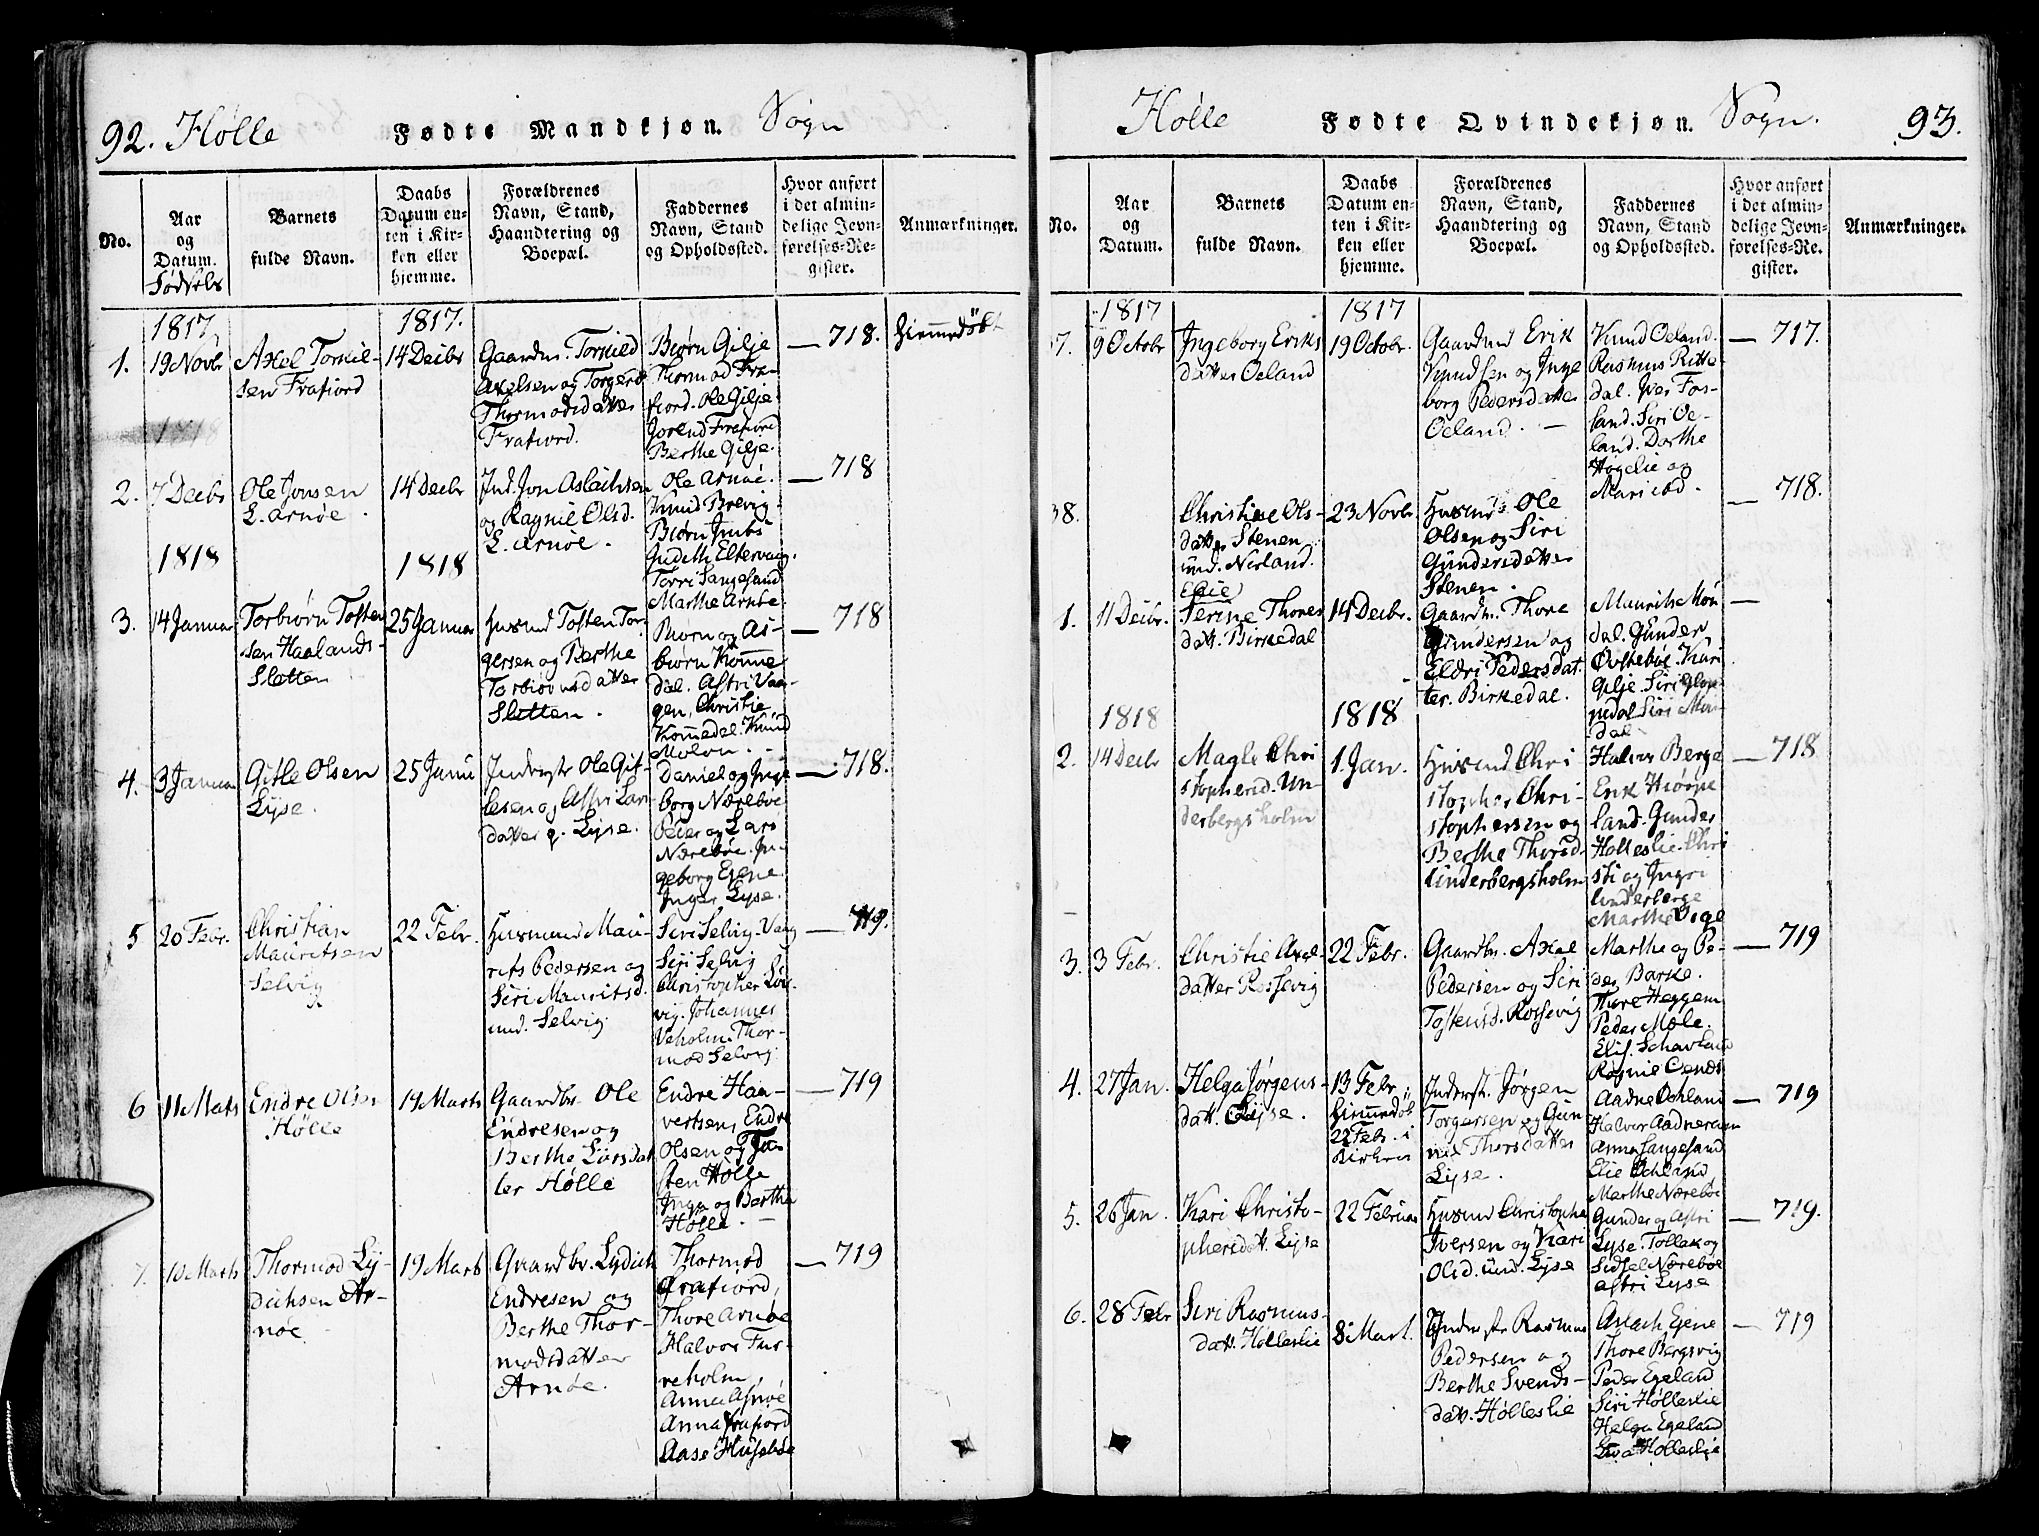 92. Hølle
Fødte Mandkjøn.
Sogn
No.
Aar
og
Datum.
Fødsels
Barnets
fulde Navn.
Daabs
Datum en-
ten i Kir-
ken eller
hjemme.
Forældrenes
Navn, Stand,
Haandtering og
Boepæl.
Faddernes
Navn, Stand
og Opholdssted.
Hvor anført
i det almin-
delige Jevn-
førelses-Re-
gister.
Anmærkninger.
1817.
1.
19 Novbr
Axel Torkil-
sen Frafiord
1817.
14 Decbr
Gaardm. Torkild
Axelsen og Torgerd
Thormodsdatter
Frafiord.
Biørn Gilje
Thormod Fra-
fiord. Ole Gilje
Jorend Frafiord
Berthe Gilje.
718.
hiemmedöbt
1818
2.
7 Decbr
Ole Jonsen
L. Arnøe.
14 Decbr
Ind. Jon Aslachsen
og Ragnil Olsd.
L. Arnøe.
Ole Arnøe.
Knud Brevig.
Biørn
Gudeth Eltervaag.
Torri Sangesand
Marthe Arnøe.
718
1818
3.
14 Januar
Torbiørn Tosten
sen Haalands-
Sletten
1818
25 Januar
Husmd Tosten Tor-
gersen og Berthe
Torbiørnsdatter
Sletten.
Biørn og As-
biørn Komme
dal. Astri Vaa-
gen, Christie
Komedal. Knud
Molvn.
718
4.
3 Januar
Gitle Olsen
Lyse.
25 Janu
Inderstr Ole Git-
lesen og Astri Lar-
datter q. Lyse.
Daniel og Inge
borg Nærebøe
Peder og Lars
Nærebøe. In-
geborg Eiene
Inger Lyse.
718.
5
20 Febr.
Christian
Mauritsen
Selvig
22 Febr.
Husmand Mau-
rits Pedersen og
Siri Mauritsd.
und. Selvig.
Siri Selvig. Vaag
Siri Selvig
Christopher Løs-
vig. Johannes
Veholm. Thor-
mod Selvig.
719.
6
11 Marts
Endre Olsen
Hølle
19 Marts
Gaardbr. Ole
Endresen og
Berthe Larsdat
ter Hølle
Endre Haa-
vertsen, Endre
Olsen og To-
sten Hølle
Inga og Bertha
Hølle.
719
7.
10 Marts
Thormod Ly-
dichsen Ar-
nøe.
19 Marts
Gaardbr. Lydich
Endresen og
Berthe Thor-
modsdatter
Arnøe.
Thormod
Frafiord,
Thore Arnøe
Halvor Fur-
reholm,
Anna Arnøe
Anna Frafiord
Aase Husebøe
719
Hølle
Fødte Qvindekjøn.
Sogn.
93.
No.
Aar
og
Datum.
Barnets
fulde Navn.
Daabs
Datum en-
ten i Kir-
ken eller
hjemme.
Forældrenes
Navn, Stand,
Haandtering og
Boepæl.
Faddernes
Navn, Stand
og Opholdssted.
Hvor anført
i det almin-
delige Jevn-
førelses-Re-
gister.
Anmærkninger.
1817
37.
9 Octobr
Ingeborg Eriks
datter Oeland
1817
19 Octobr.
Gaardmd Erik
Knudsen og Inge
borg Pedersdatter
Oeland.
Knud Oeland.
Rasmus Ritte
dal. Iver Fos-
land. Siri Oe-
land. Dorthe
Høgelie og
Mari ibd.
717.
38.
Christine Ols-
datter Stenen
und. Nerland.
23 Novbr.
Husmd Ole
Olsen og Siri
Gundersdatter
Stenen.
718.
1.
11 Decbr.
Elie
Serine Thores
datt. Birkedal
14 Decbr.
Gaardm. Thore
Gundersen og
Eldri Pedersdat-
ter. Birkedal.
Maurits Møn
dal. Gunder
Østebøe. Kari
Gilje. Siri Glop
pedal. Siri Møn-
dal
1818
2.
14 Decbr
Magle Chri
stophersd. Un-
derbergsholm
1818
1. Jan.
Husmd Chri
stopher Chri-
stophersen og
Berthe Thorsd.
Underbergsholm
Halvor Berge
Erik Hiørpe
land. Gunder
Holleslie. Chri
sti og Ingri
Underberge
Marthe Øige
718
3.
3 Febr.
Christie Axel-
datter Rossevig
22 Febr.
Gaardbr. Axel
Pedersen og Siri
Tostensd. Rossevig
Marthe og Pe-
der Barke.
Thore Heggem
Peder Mæle.
Elis. Schavland
719
4.
27 Jan.
Helga Jørgens-
datt. Lyse.
13 Febr.
hiemmedöb
22 Febr. i
Kirken
Inderstr. Jørgen
Torgersen og Gun
nild Thorsdatter
Lyse.
Ragnie Oends
Aadne Ochland
Halvor Aadneram
Anna Sangesand
Elie Ochland
Marthe Nærebøe
719
5.
26 Jan.
Kari Christo-
phersdatt. Lyse
22 Februar
Husmd Christopher
Iversen og Kari
Olsd. und. Lyse
Gunder og Astri
Lyse. Tollak og
Sidsel Nærebøe
Astri Lyse
719.
6.
28 Febr
Siri Rasmus-
datt. Holleslie
8 Mart.
Inderstr Rasmus
Pedersen og
Berthe Svends-
datt. Hølleslie
Aslach Eiene
Thore Bergsvig
Peder Egeland
Siri Hølleslie
Helga Egeland
Holleslie
719